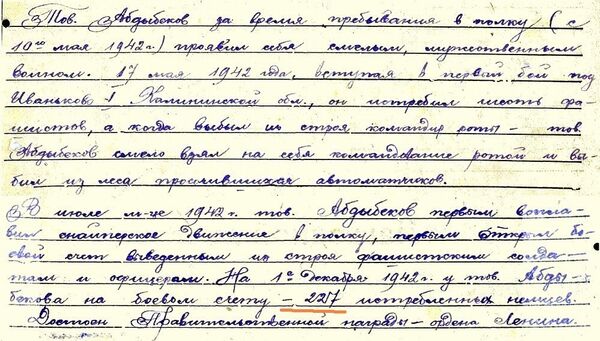 Тов. Абдыбеков за время пребывания в полку (с
10го мая 1942 г.) проявил себя смелым, мужественным
воином. 17 мая 1942 года, вступая в первый бой под
Иваньково I Калининской обл., он истребил шесть фа-
шистов, а когда выбыл из строя командир роты – тов.
Абдыбеков смело взял на себя командование ротой и вы-
бил из леса просочившихся автоматчиков.
В июле м-це 1942 г. тов. Абдыбеков первым возгла-
вил снайперское движение в полку, первым открыл бо-
евой счет выведенным из строя фашистским солда-
там и офицерам. На 1е декабря 1942 г. у тов. Абды-
бекова на боевом счету – 227 истребленных немцев.
Достоин Правительственной награды – ордена Ленина.